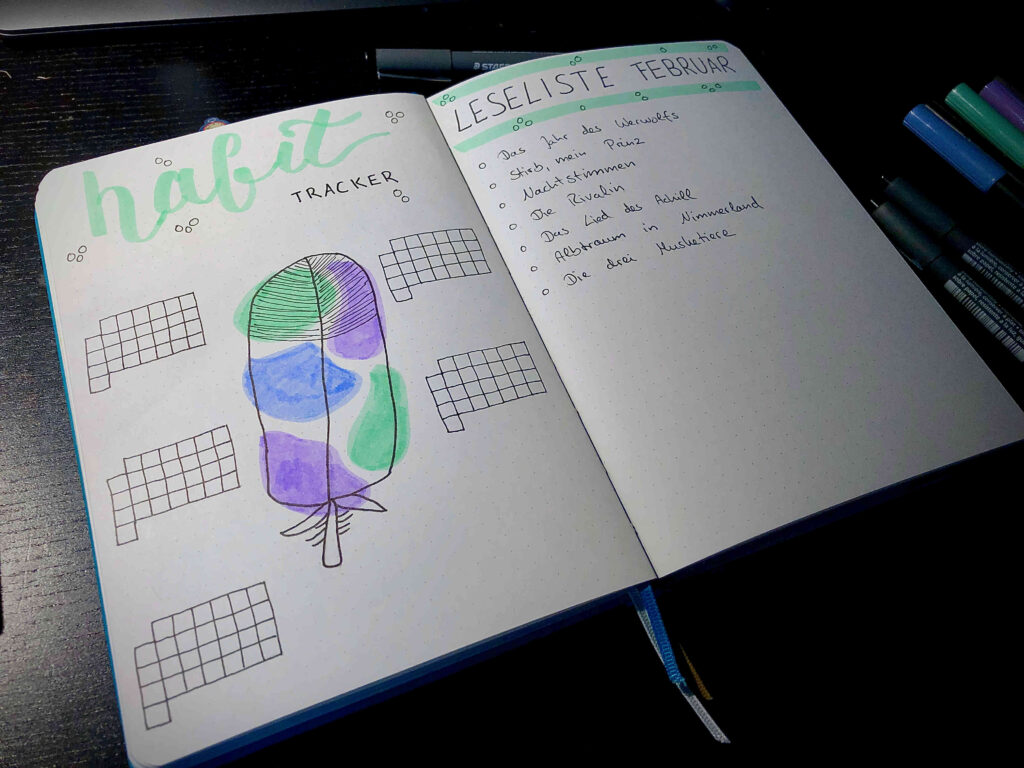 habit
TRACKER
LESELISTE FEBRUAR
Das Jahr des Werwolfs
Stirb, mein Prinz
Nachtstimmen
Die Rivalin
Das Lied des Achill
Albtraum in Nimmerland
Die drei Musketiere